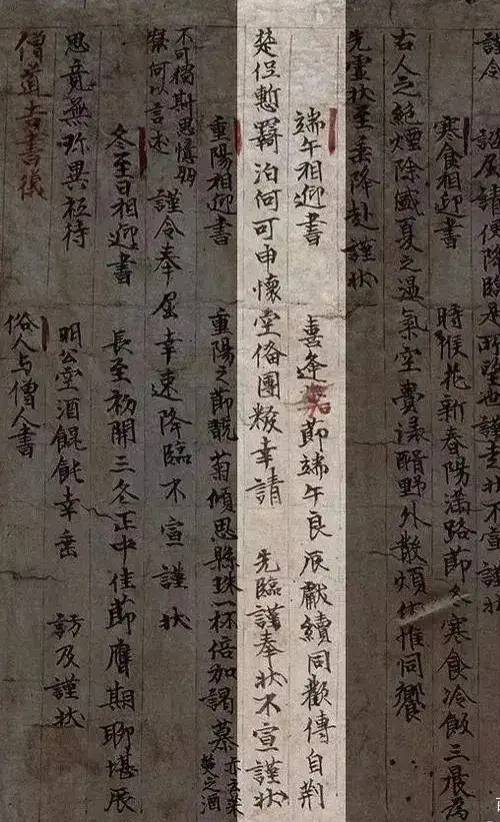 是所望也謹走狀不宣謹狀
寒食相迎書 時候花新春陽滿路節冬寒食冷飯三晨為
右人之絕煙除盛夏之溫氣空賫淥醑野外散煩伏惟同饗
先靈狀至垂降赴謹狀
端午相迎書 喜逢嘉節端午良辰獻續同歡傳自荊
楚但慙羇泊何可申懷堂俻團糉幸請 先臨謹奉狀不宣謹狀
重陽相迎書 重陽之節翫菊傾思懸珠一杯倍加謁慕
不可獨斯思 何以言述 謹令奉屈幸速降臨不宣謹狀
冬至日相迎書 長至初開三冬正中佳節膺期聊堪展
思竟無珎異秪待 明公空酒餛飩幸垂 訪及謹狀
僧道吉書後 俗人与僧人書